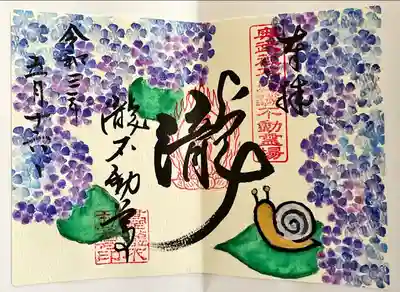 奉拝
不動霊場
瀧
瀧不動尊
令和三年
五月十六日